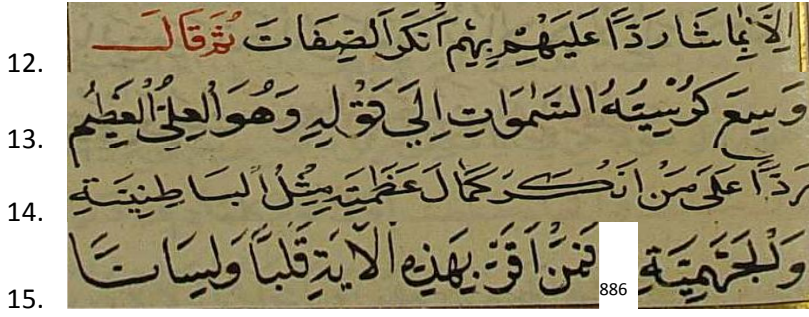 12. اِلَّا بِمَا شَا رَدًّا عَلَيْهِمْ بِهِمْ اَنْكَرَ الصِّفَاتَ ثُمَّ قَالَ
13. وَسِعَ كُرْسِيُّهُ السَّمٰوَاتِ اِلَي قَوْلِهِ وَهُوَ الْعَلِيُّ الْعَظِيْم
14. رَدًّا عَلَى مَنْ اَنْكَرَ كَمَالَ عَظَمَتِهِ مِثْلُ الْبَاطِنِيَّةِ
15. وَلْجَهْمِيَّةِ 886 فَمَنْ اَقَرَّ بِهَذِهِ الْاٰيَةِ قَلْبًا وَلِسَانًا